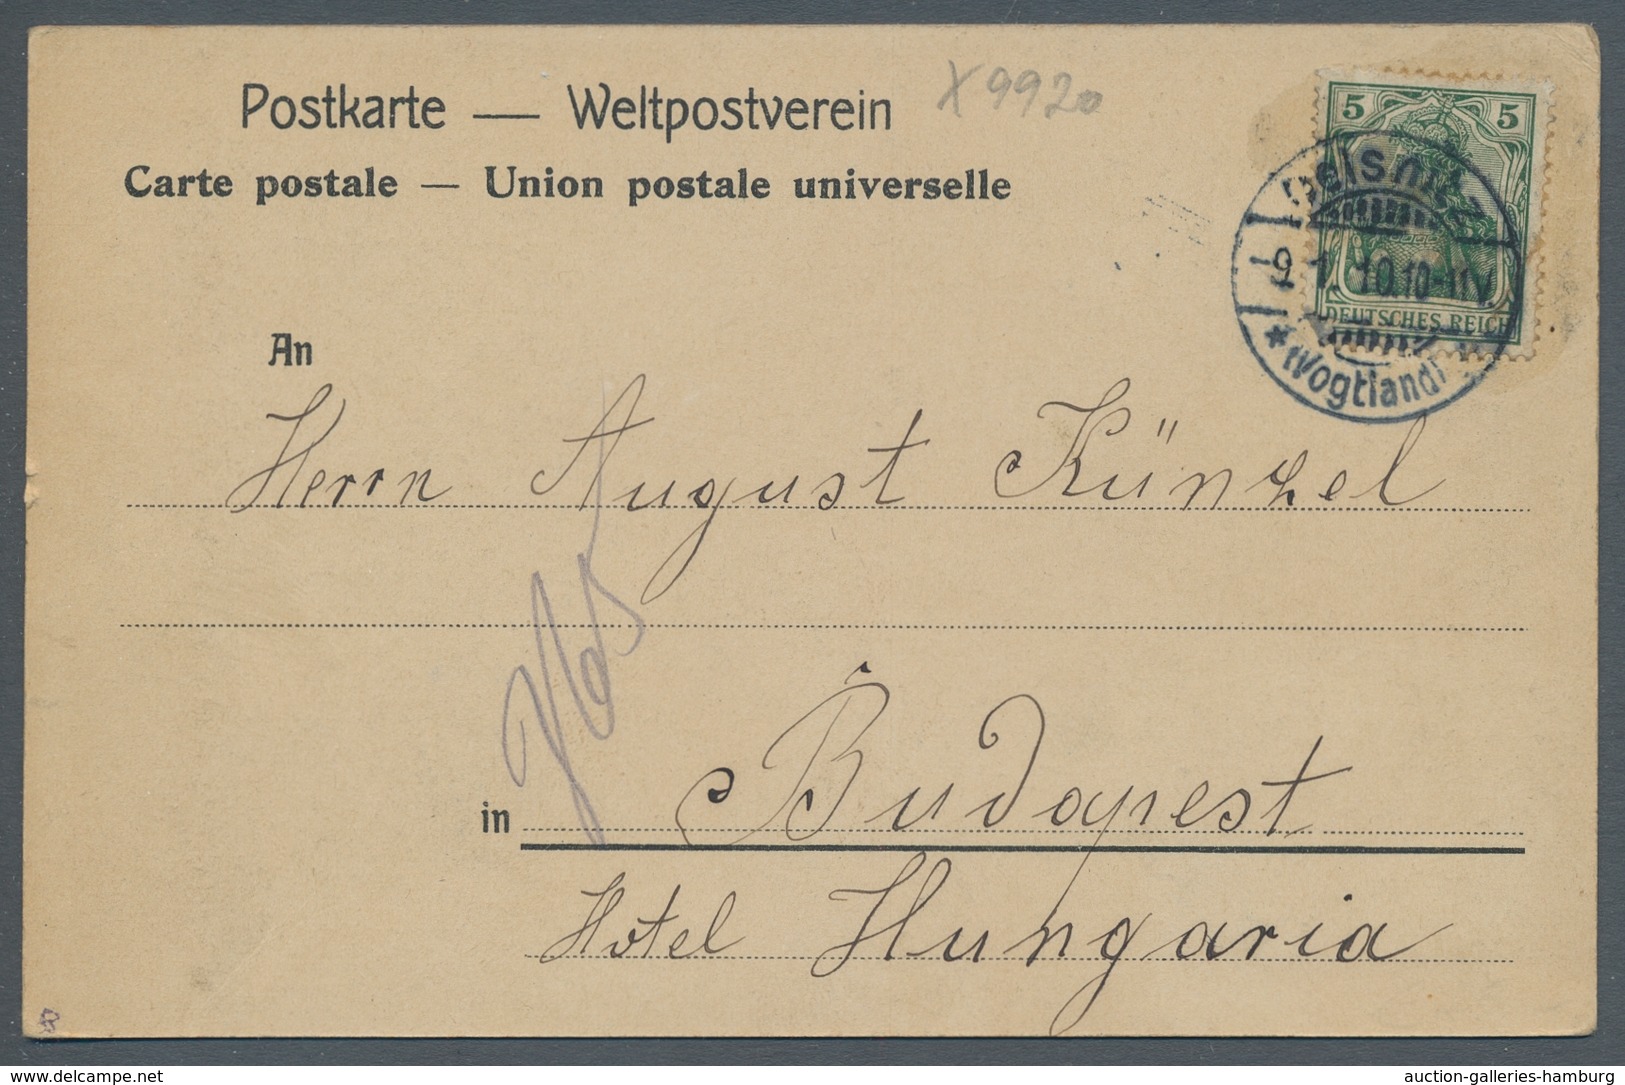 Postkarte — Weltpostverein
X 9920
Carte postale — Union postale universelle
5 5
Oelsnitz
9.1.10.10-11V.
DEUTSCHES REICH
* (Vogtland)
An
Herrn August Künzel
in Budapest
Hotel Hungaria
www.delcampe.net
auction-galleries-hamburg